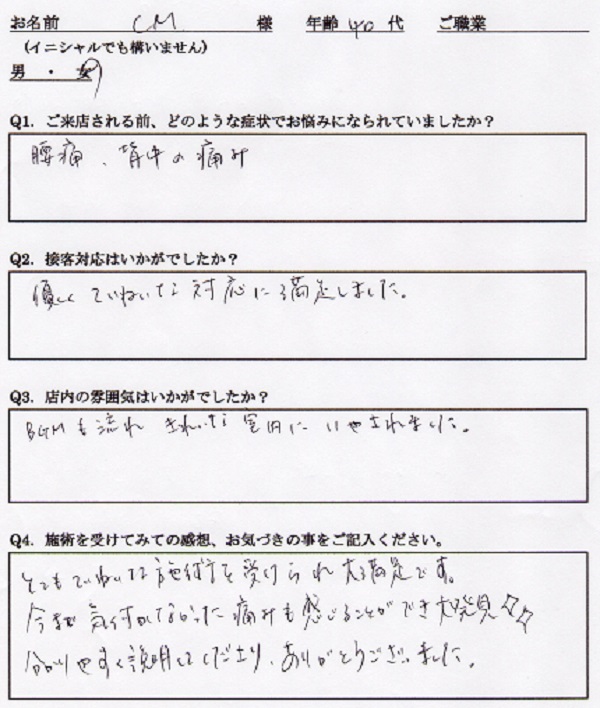 お名前 C.M. 様 年齢 40 代 ご職業
(イニシャルでも構いません)
男 ・ 女
Q1. ご来店される前、どのような症状でお悩みになられていましたか？
腰痛、背中の痛み
Q2. 接客対応はいかがでしたか？
優しくていねいな対応に満足しました。
Q3. 店内の雰囲気はいかがでしたか？
BGMも流れ きれいな室内に いやされました。
Q4. 施術を受けてみての感想、お気づきの事をご記入ください。
とてもていねいな施術を受けられ大満足です。
今まで気付かなかった痛みも感じることができ大発見☆☆
分かりやすく説明してくださり、ありがとうございました。